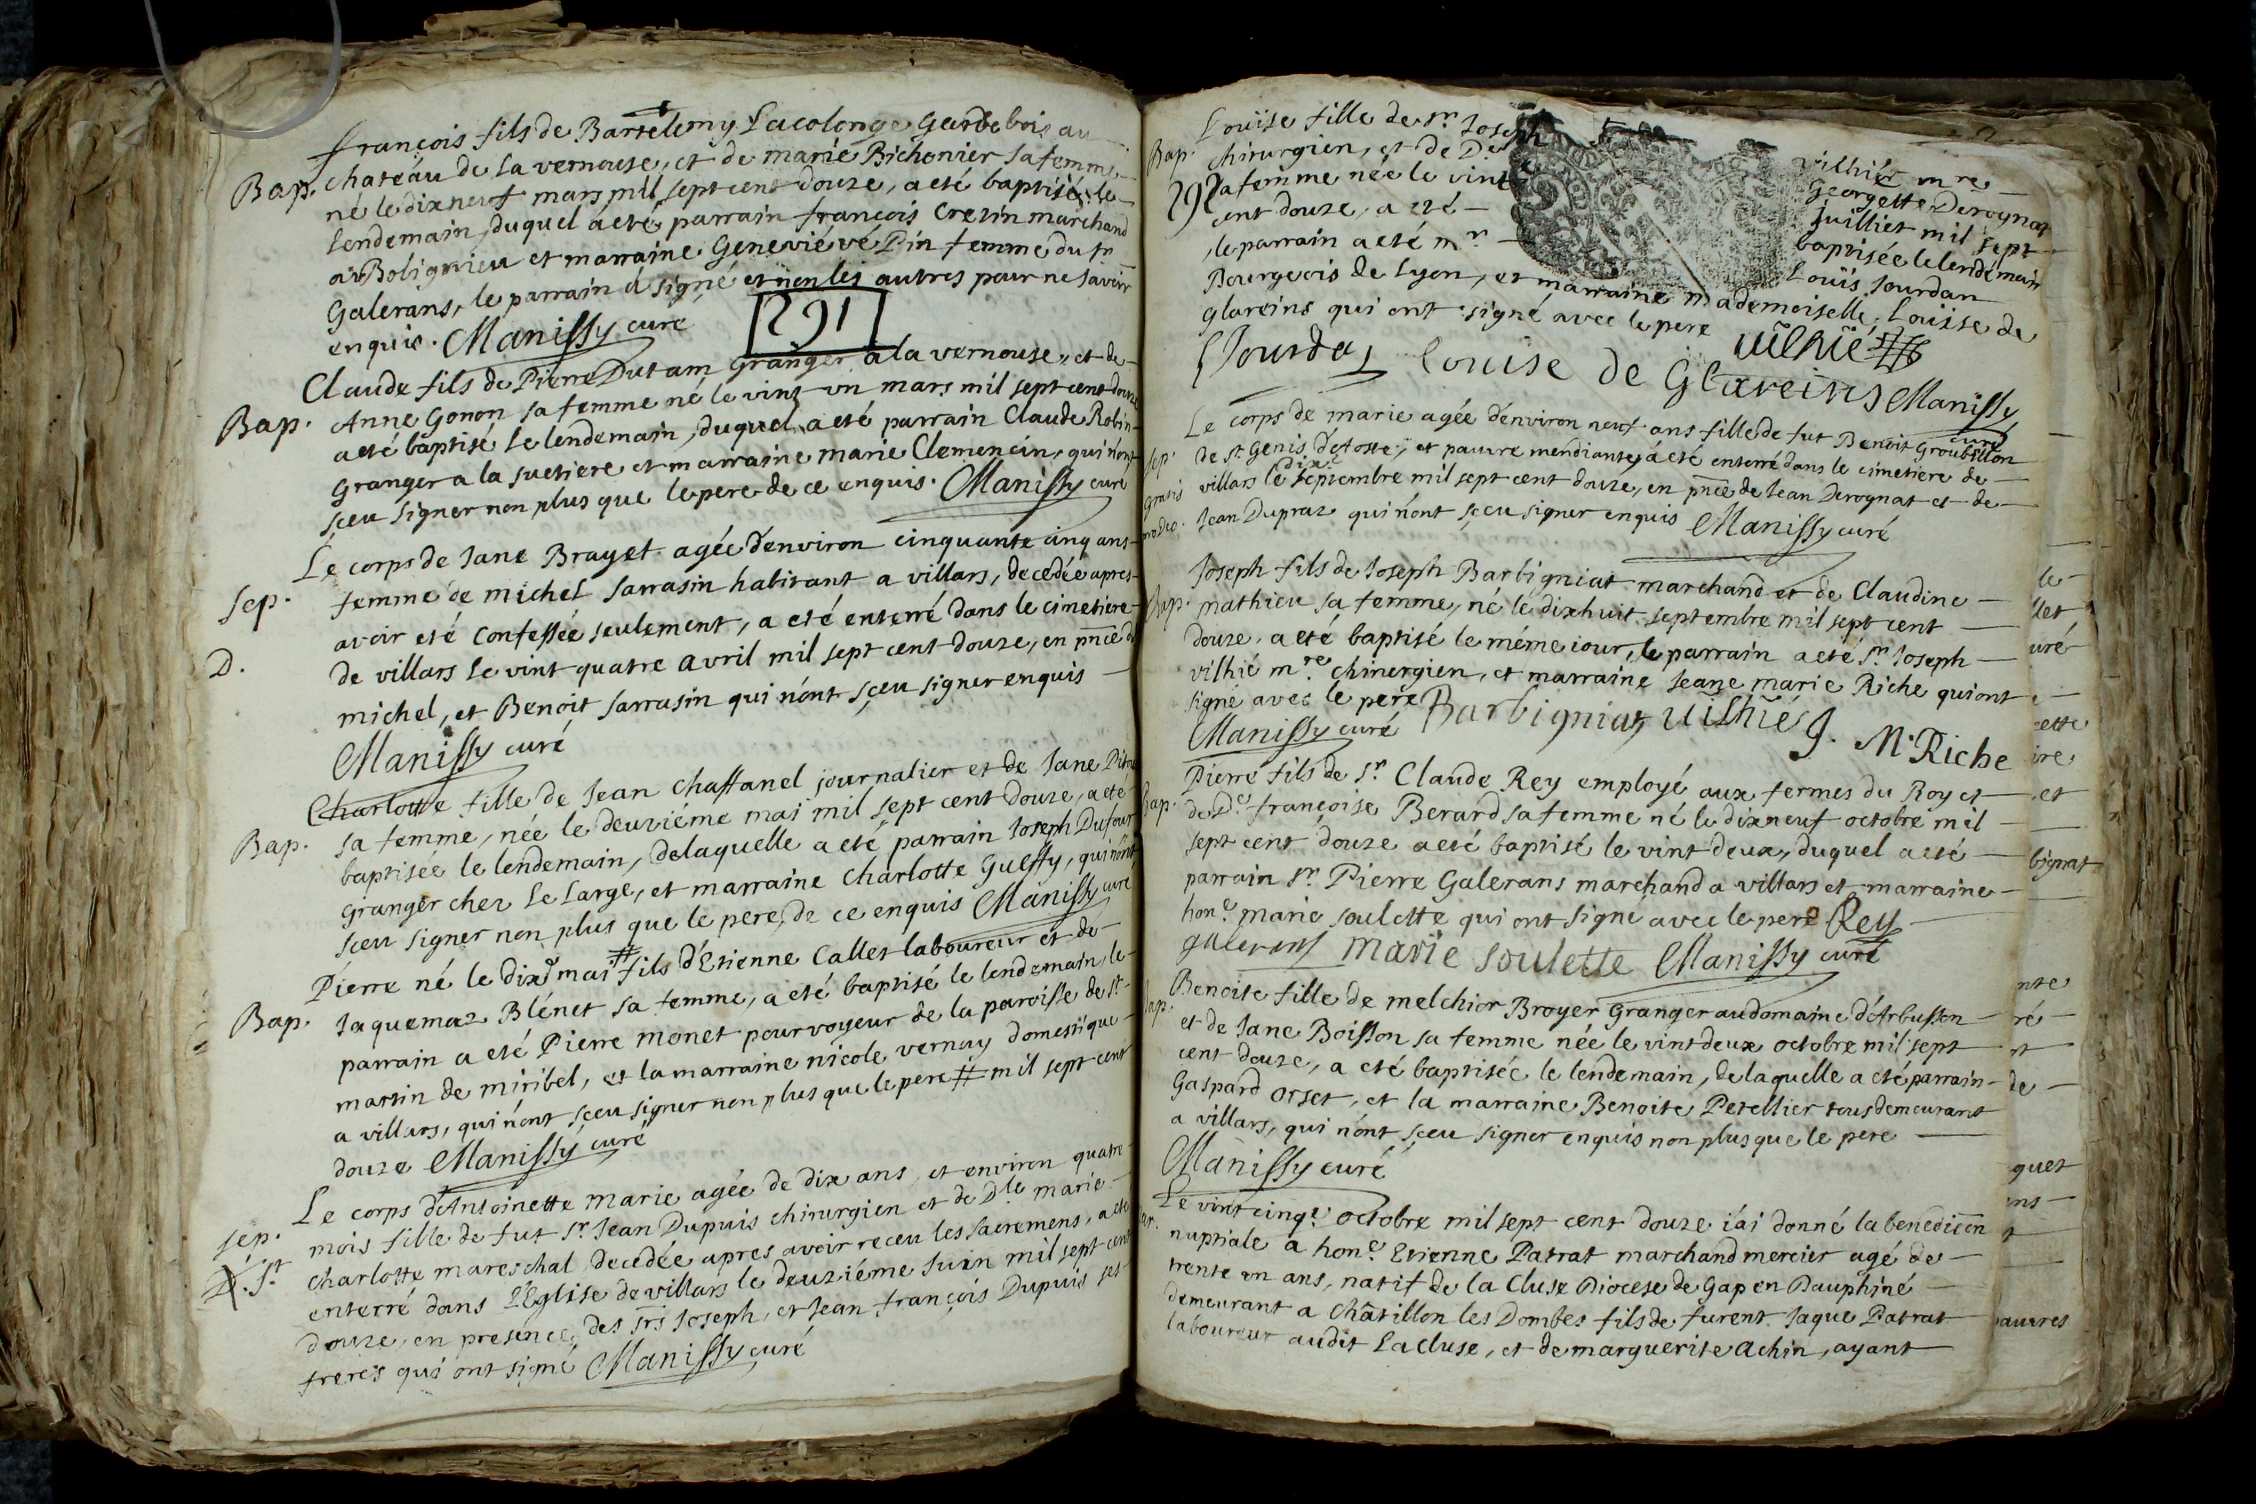 françois fils de Bartelemy Lacolonge Gardebois au
Bap. chateau de la vernouse, et de marie Bichonier sa femme
né le dixneuf mars mil sept cent douze, a eté baptisé le
lendemain, duquel a eté parrain françois Crevin marchand
a Bolignieu et marraine Genevieve Pin femme du sr
Galerans, le parrain a signé et non les autres pour ne savoir
enquis. Manissy curé
291
Claude fils de Pierre Dutam Granger a la vernouse, et de
Bap. Anne Gonon sa femme né le vint un mars mil sept cent douze
a eté baptisé le lendemain, duquel a eté parrain Claude Robin
Granger a la suetiere et marraine marie Clemencin, qui n'ont
sceu signer non plus que le pere de ce enquis. Manissy curé
Le corps de Jane Brayet agée d'environ cinquante cinq ans
Sep. femme de michel Sarrasin habitant a villars, decedée apres
avoir eté Confessée seulement, a eté enterré dans le cimetiere
D. de villars le vint quatre avril mil sept cent douze, en pnce de
michel, et Benoit Sarrasin qui n'ont sceu signer enquis
Manissy curé
Charlotte fille de Jean Chaffanel journalier et de Jane Pitre
Bap. sa femme, née le deuxiéme mai mil sept cent douze, a eté
baptisée le lendemain, delaquelle a eté parrain Joseph Dufour
Granger chez le Large, et marraine Charlotte Gueffy, qui n'ont
sceu signer non plus que le pere, de ce enquis Manissy curé
Pierre né le dixe mai # fils d'Etienne Callet laboureur et de
Bap. Jaquemaz Blénet sa femme, a eté baptisé le lendemain, le
parrain a eté Pierre monet pourvoyeur de la paroisse de St
martin de miribel, et la marraine nicole vernay domestique
a villars, qui n'ont sceu signer non plus que le pere # mil sept cent
douze Manissy curé
Le corps d'Antoinette marie agée de dix ans, et environ quatre
Sep. mois fille de fut Sr Jean Dupuis chirurgien et de Dle marie
D. St Charlotte mareschal decedée apres avoir receu les sacremens, a eté
enterré dans l'Eglise de villars le deuziéme Juin mil sept cent
douze, en presence des srs Joseph, et Jean françois Dupuis ses
freres qui ont signé Manissy curé
Louise fille de sr Joseph vilhié mre
Bap. chirurgien, et de De Georgette Derognat
292 sa femme née le vint juilliet mil sept
cent douze, a eté baptisée le lendemain
le parrain a eté mr Louis Jourdan
Bourgeois de Lyon, et marraine mademoiselle Louise de
Glareins qui ont signé avec le pere vilhié
LJourdan Louise de Glareins Manissy curé
Le corps de marie agée d'environ neuf ans fille de fut Benoit Groubillon
Sep. de St Genis d'Aoste, et pauvre mendiante, a eté enterré dans le cimetiere de
gratis villars le dixe septembre mil sept cent douze, en pnce de Jean Derognat et de
pro Deo. Jean Dupraz qui n'ont sceu signer enquis Manissy curé
Joseph fils de Joseph Barbigniat marchand et de Claudine
Bap. mathieu sa femme, né le dixhuit septembre mil sept cent
douze, a eté baptisé le méme jour, le parrain a eté Sr Joseph
vilhié mre chirurgien, et marraine Jeane marie Riche qui ont
signé avec le pere Barbigniat vilhié J. M. Riche
Manissy curé
Pierre fils de Sr Claude Rey employé aux fermes du Roy et
Bap. de De françoise Berard sa femme né le dixneuf octobre mil
sept cent douze a eté baptisé le vint deux, duquel a eté
parrain Sr Pierre Galerans marchand a villars et marraine
hone marie soulette qui ont signé avec le pere Rey
galerans marie soulette Manissy curé
Benoite fille de melchior Broyer Granger au domaine d'Arbussen
Bap. et de Jane Boisson sa femme née le vint deux octobre mil sept
cent douze, a eté baptisée le lendemain, de laquelle a eté parrain
Gaspard Orset, et la marraine Benoite Petellier tous demeurant
a villars, qui n'ont sceu signer enquis non plus que le pere
Manissy curé
Le vint cinqe octobre mil sept cent douze j'ai donné la benedicon
nuptiale a hone Etienne Patrat marchand mercier agé de
trente un ans, natif de la Cluse Diocese de Gap en Dauphiné
demeurant a Châtillon les Dombes fils de furent Jaque Patrat
laboureur audit La Cluse, et de marguerite Achin, ayant